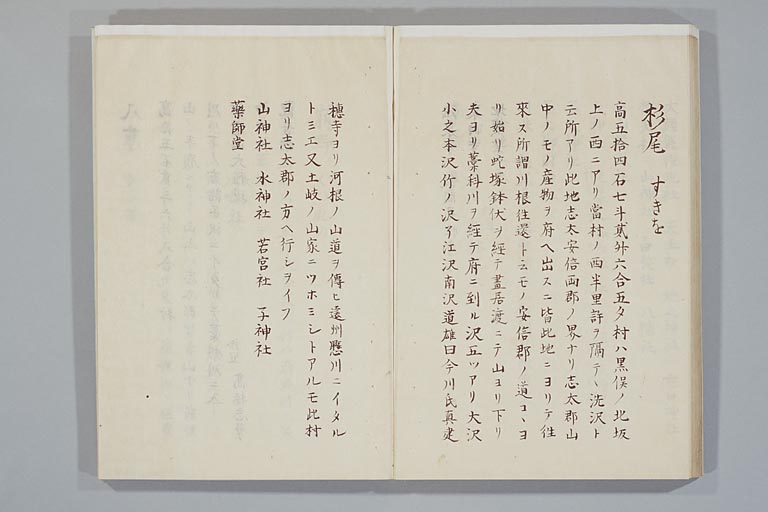 杉尾 すきを
高五拾四石七斗貳升六合五夕村ハ黒俣ノ北坂
上ノ西ニアリ當村ノ西半里許ヲ隔テヽ洗沢ト
云所アリ此地志太安倍両郡ノ界ナリ志太郡山
中ノモノ産物ヲ府ヘ出スニ皆此地ニヨリテ往
來ス所謂川根往還ト云モノ安倍郡ノ道コヽヨ
リ始リ蛇塚鉢伏ヲ經テ晝居渡ニテ山ヨリ下リ
夫ヨリ藁科川ヲ經テ府ニ到ル沢五ツアリ大沢
小之本沢竹ノ沢 江沢南沢道雄曰今川氏真建
穂寺ヨリ河根ノ山道ヲ傳ヒ遠州懸川ニイタル
トミエ又土岐ノ山家ニツホミシトアルモ此村
ヨリ志太郡ノ方ヘ行シヲイフ
山神社 水神社 若宮社 子神社
藥師堂